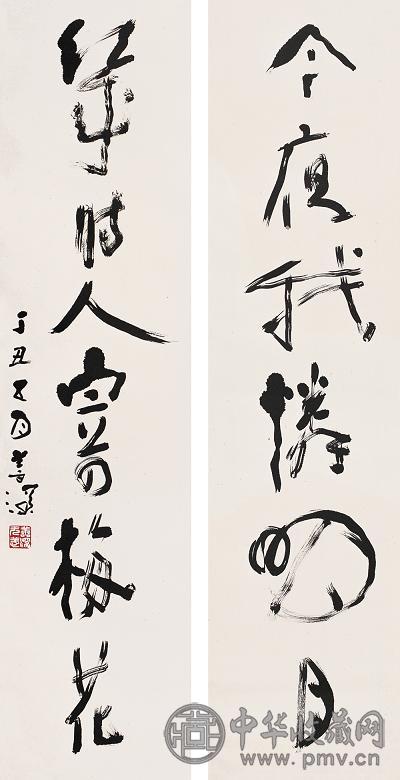 今夜我憐明月
幾時人寄梅花
丁丑五月
中华收藏网
www.pmv.cn